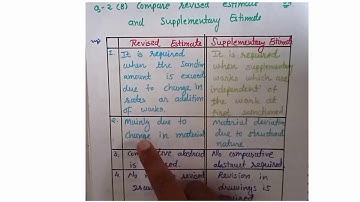 Q-2 (B) Compare revised estimate
and Supplementary Estimate
Revised Estimate
Supplementary Estimate
1. It is required
when the
amount is exceed
due to change in
rates or addition
of works.
It is required
when supplementary
works which are
independent of
the work at
first sanctioned
2. Mainly due to
change in material
Material deviation
due to structural
nature
3. Comparative abstract
is required.
No comparative
abstract required.
4. No
Revision in
drawings is